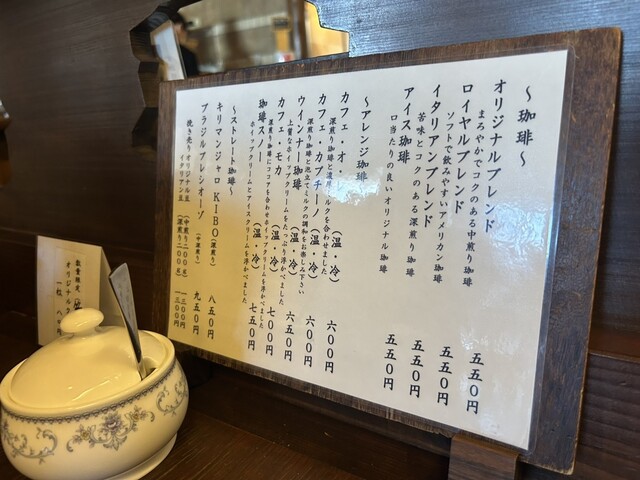 ～珈琲～
オリジナルブレンド 五五〇円
まろやかでコクのある中煎り珈琲
ロイヤルブレンド 五五〇円
ソフトで飲みやすいアメリカン珈琲
イタリアンブレンド 五五〇円
苦味とコクのある深煎り珈琲
アイス珈琲 五五〇円
口当たりの良いオリジナル珈琲
～アレンジ珈琲～
カフェ・オ・ （温・冷） 六〇〇円
深煎り珈琲と濃厚ミルクを合わせました
カフェ カプチーノ （温・冷） 六〇〇円
深煎り珈琲と泡立てミルクの調和をお楽しみ下さい
ウインナー珈琲 （温・冷） 六五〇円
上質なホイップクリームをたっぷり浮かべました
カフェ モカ （温・冷） 七〇〇円
深煎り珈琲にココアを合わせホイップクリームを浮かべました
珈琲スノー （温・冷） 七五〇円
ホイップクリームとアイスクリームを浮かべました
～ストレート珈琲～
キリマンジャロ KIBO（深煎り） 八五〇円
ブラジルプレシオーゾ （中深煎り） 九五〇円
挽き売りオリジナル豆 （中煎り二〇〇g） 一三〇〇円
イタリアン豆 （深煎り二〇〇g） 一三〇〇円
数量限定
オリジナル
一粒